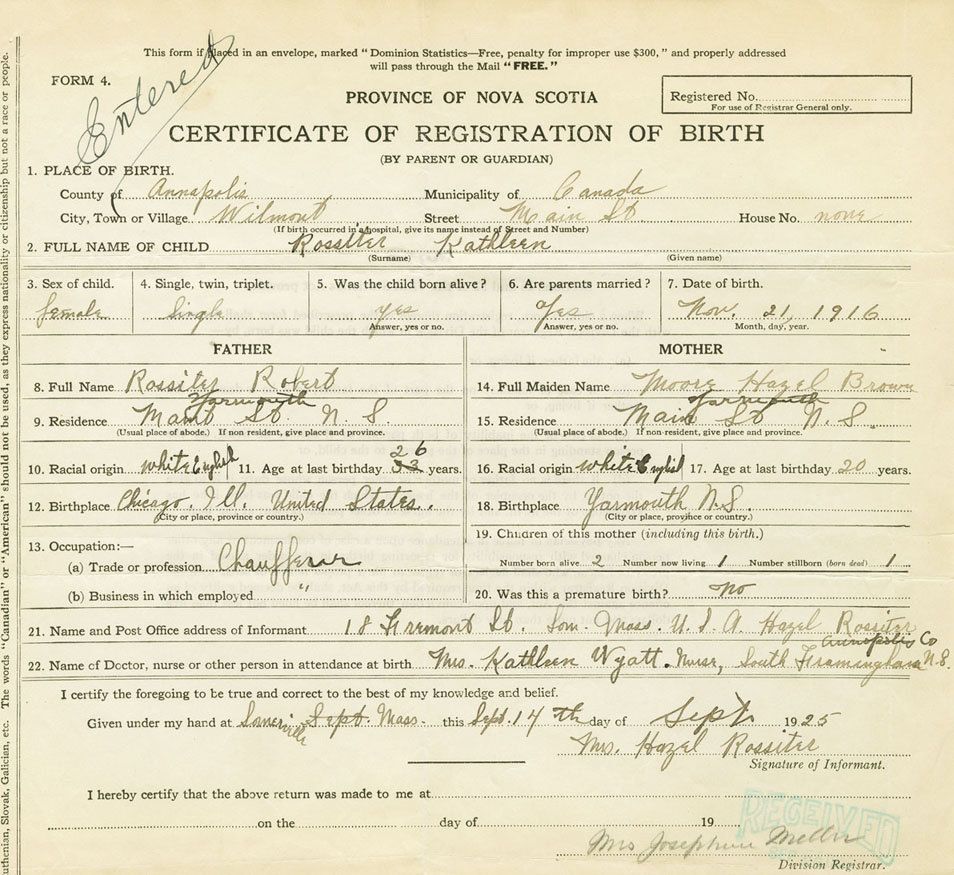 This form if placed in an envelope, marked “Dominion Statistics—Free, penalty for improper use $300,” and properly addressed
will pass through the Mail “FREE.”
Entered
FORM 4.
PROVINCE OF NOVA SCOTIA
Registered No.
For use of Registrar General only.
CERTIFICATE OF REGISTRATION OF BIRTH
(BY PARENT OR GUARDIAN)
1. PLACE OF BIRTH.
County of Annapolis Municipality of Canada
City, Town or Village Wilmont Street Main St House No. none
(If birth occurred in a hospital, give its name instead of Street and Number)
2. FULL NAME OF CHILD Rossiter Kathleen
(Surname) (Given name)
3. Sex of child. 4. Single, twin, triplet. 5. Was the child born alive? 6. Are parents married? 7. Date of birth.
female Single yes Yes Nov. 21, 1916
Answer, yes or no. Answer, yes or no. Month, day, year.
FATHER MOTHER
8. Full Name Rossiter Robert 14. Full Maiden Name Moore Hazel Brown
Yarmouth Yarmouth
9. Residence St. N. S. 15. Residence Main St N. S
(Usual place of abode.) If non resident, give place and province. (Usual place of abode.) If non resident, give place and province.
26
10. Racial origin white English 11. Age at last birthday years. 16. Racial origin white English 17. Age at last birthday 20 years.
12. Birthplace Chicago. Ill. United States. 18. Birthplace Yarmouth N.S.
(City or place, province or country.) (City or place, province or country.)
13. Occupation:— 19. Children of this mother (including this birth.)
(a) Trade or profession Chauffeur Number born alive 2 Number now living 1 Number stillborn (born dead) 1
(b) Business in which employed " 20. Was this a premature birth? no
21. Name and Post Office address of Informant 18 Fremont St. Som. Mass. U. S. A. Hazel Rossiter
Annapolis Co
22. Name of Doctor, nurse or other person in attendance at birth Mrs. Kathleen Wyatt. Nurse, South Framingham N.S.
I certify the foregoing to be true and correct to the best of my knowledge and belief.
Given under my hand at Somerville Sept. Mass. this Sept. 14 th day of Sept 1925
Mrs. Hazel Rossiter
Signature of Informant.
I hereby certify that the above return was made to me at
on the day of 19
RECEIVED
Mrs Josephine
Division Registrar.
uthenian, Slovak, Galician, etc. The words “Canadian” or “American” should not be used, as they express nationality or citizenship but not a race or people.